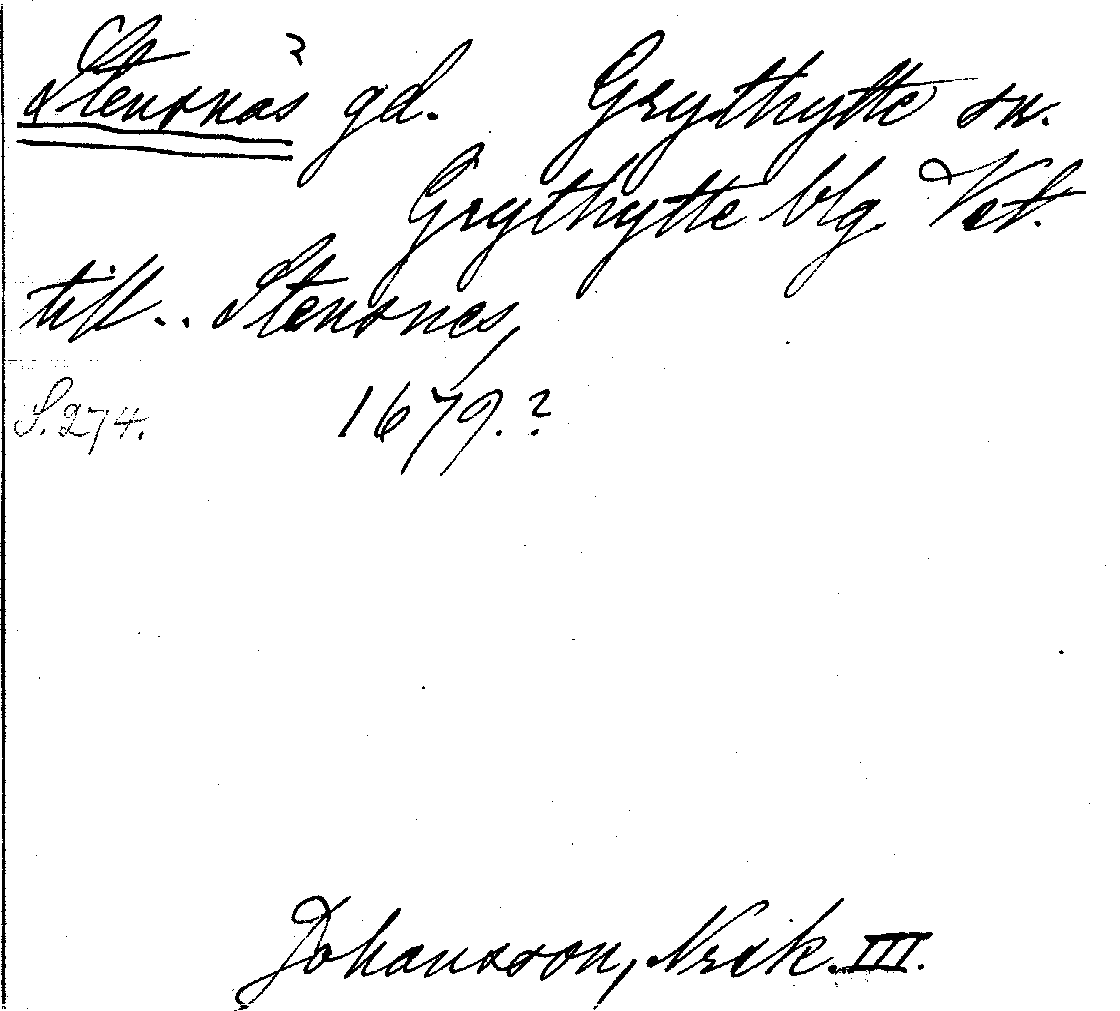 Stensnäs gd. Grythytte sn.
Grythytte blg Vst.
till.. Stensnes,
S.274. 1679.?
Johansson, Nsik. III.